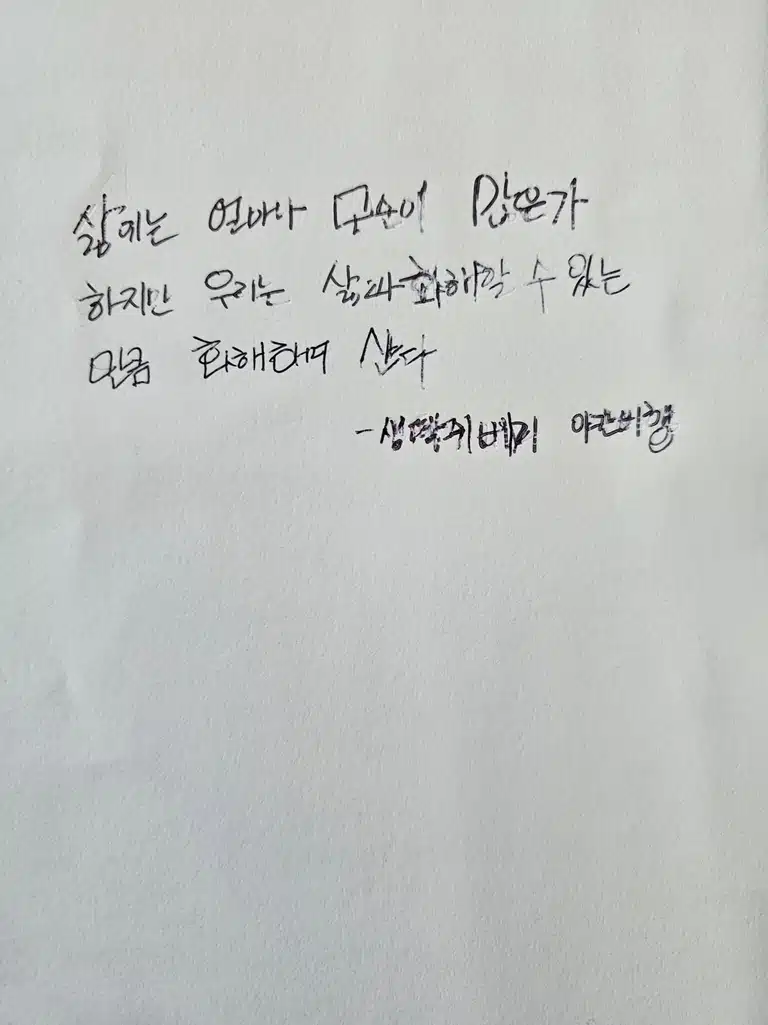 삶에는 얼마나 모순이 많은가
하지만 우리는 삶과 화해할 수 있는
만큼 화해하며 산다
- 생땍쥐베리 야간비행